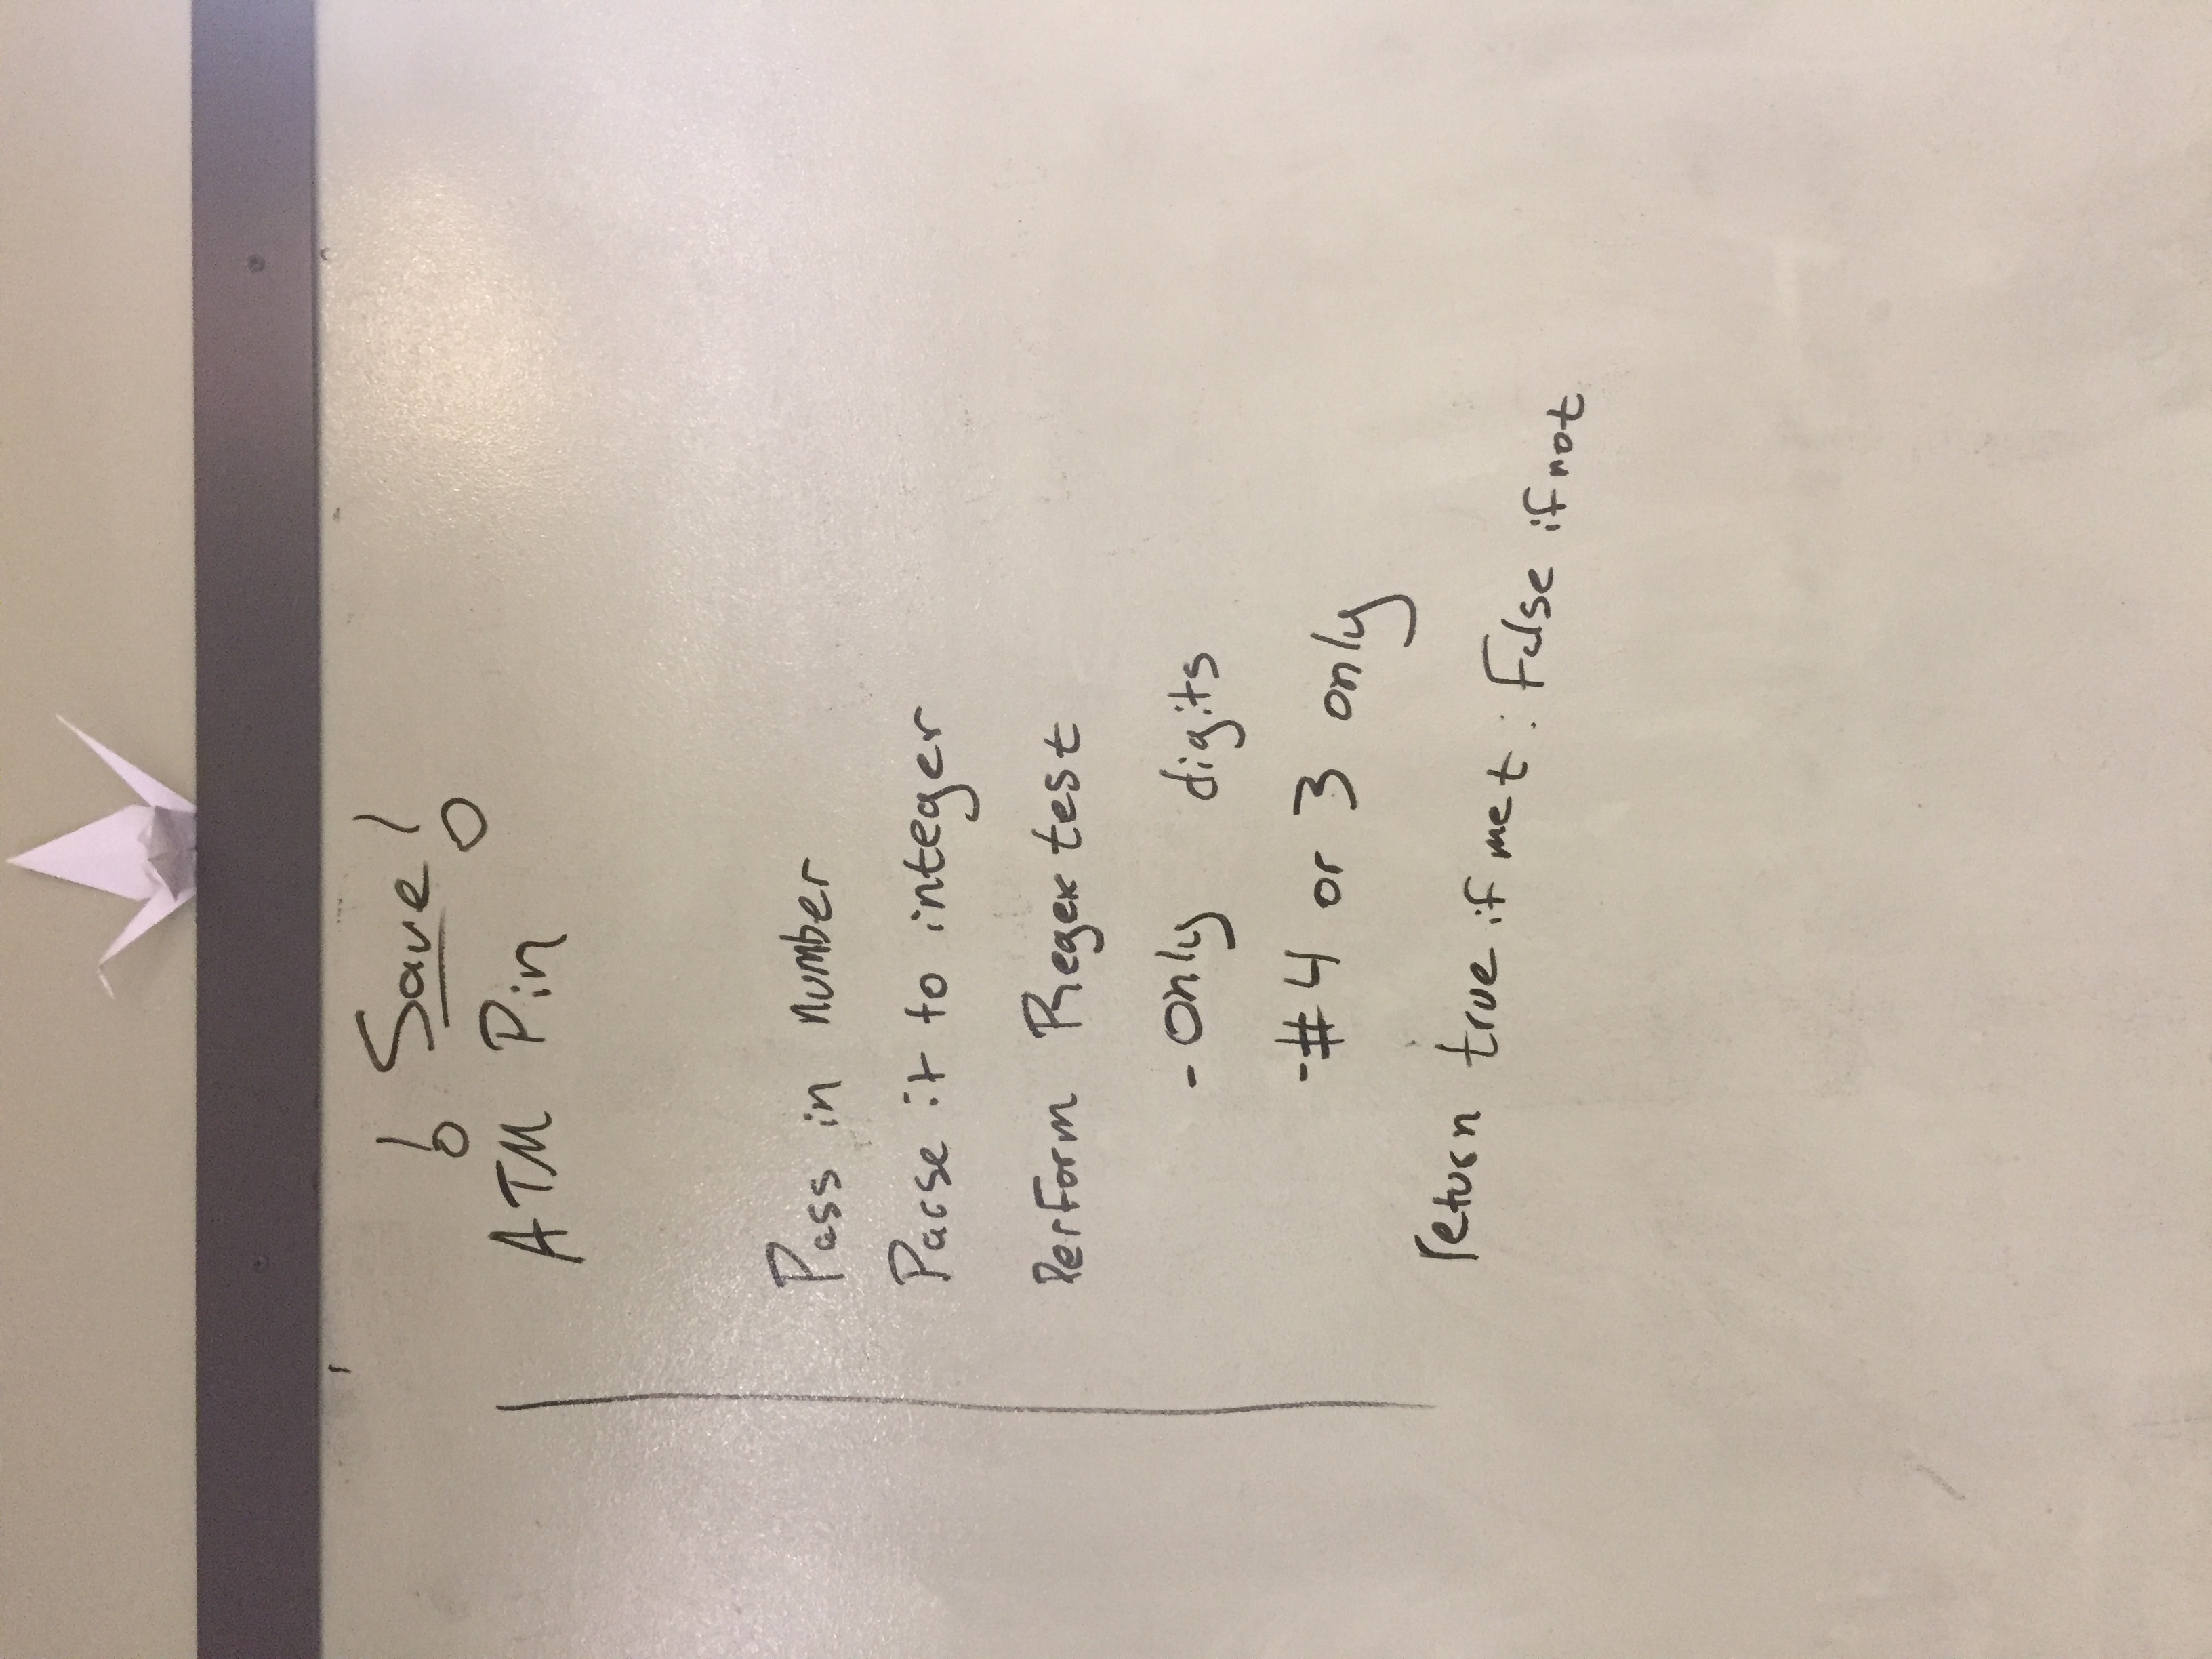 ! Save!
ATM Pin
Pass in number
Parse it to integer
Perform Regex test
- Only digits
-# 4 or 3 only
return true if met : False if not